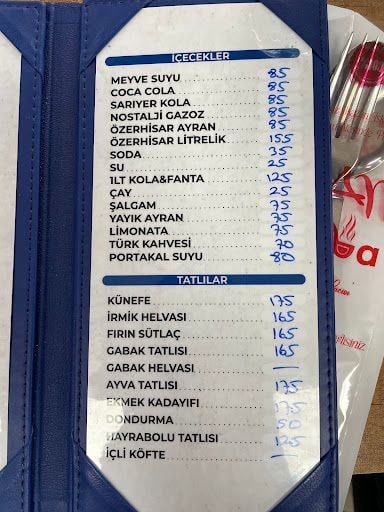 İÇECEKLER
MEYVE SUYU 85
COCA COLA 85
SARIYER KOLA 85
NOSTALJİ GAZOZ 85
ÖZERHİSAR AYRAN 85
ÖZERHİSAR LİTRELİK 155
SODA 35
SU 25
1LT KOLA&FANTA 125
ÇAY 25
ŞALGAM 75
YAYIK AYRAN 75
LİMONATA 75
TÜRK KAHVESİ 70
PORTAKAL SUYU 80
TATLILAR
KÜNEFE 175
İRMİK HELVASI 165
FIRIN SÜTLAÇ 165
GABAK TATLISI 165
GABAK HELVASI —
AYVA TATLISI 175
EKMEK KADAYIFI 175
DONDURMA 50
HAYRABOLU TATLISI 125
İÇLİ KÖFTE —